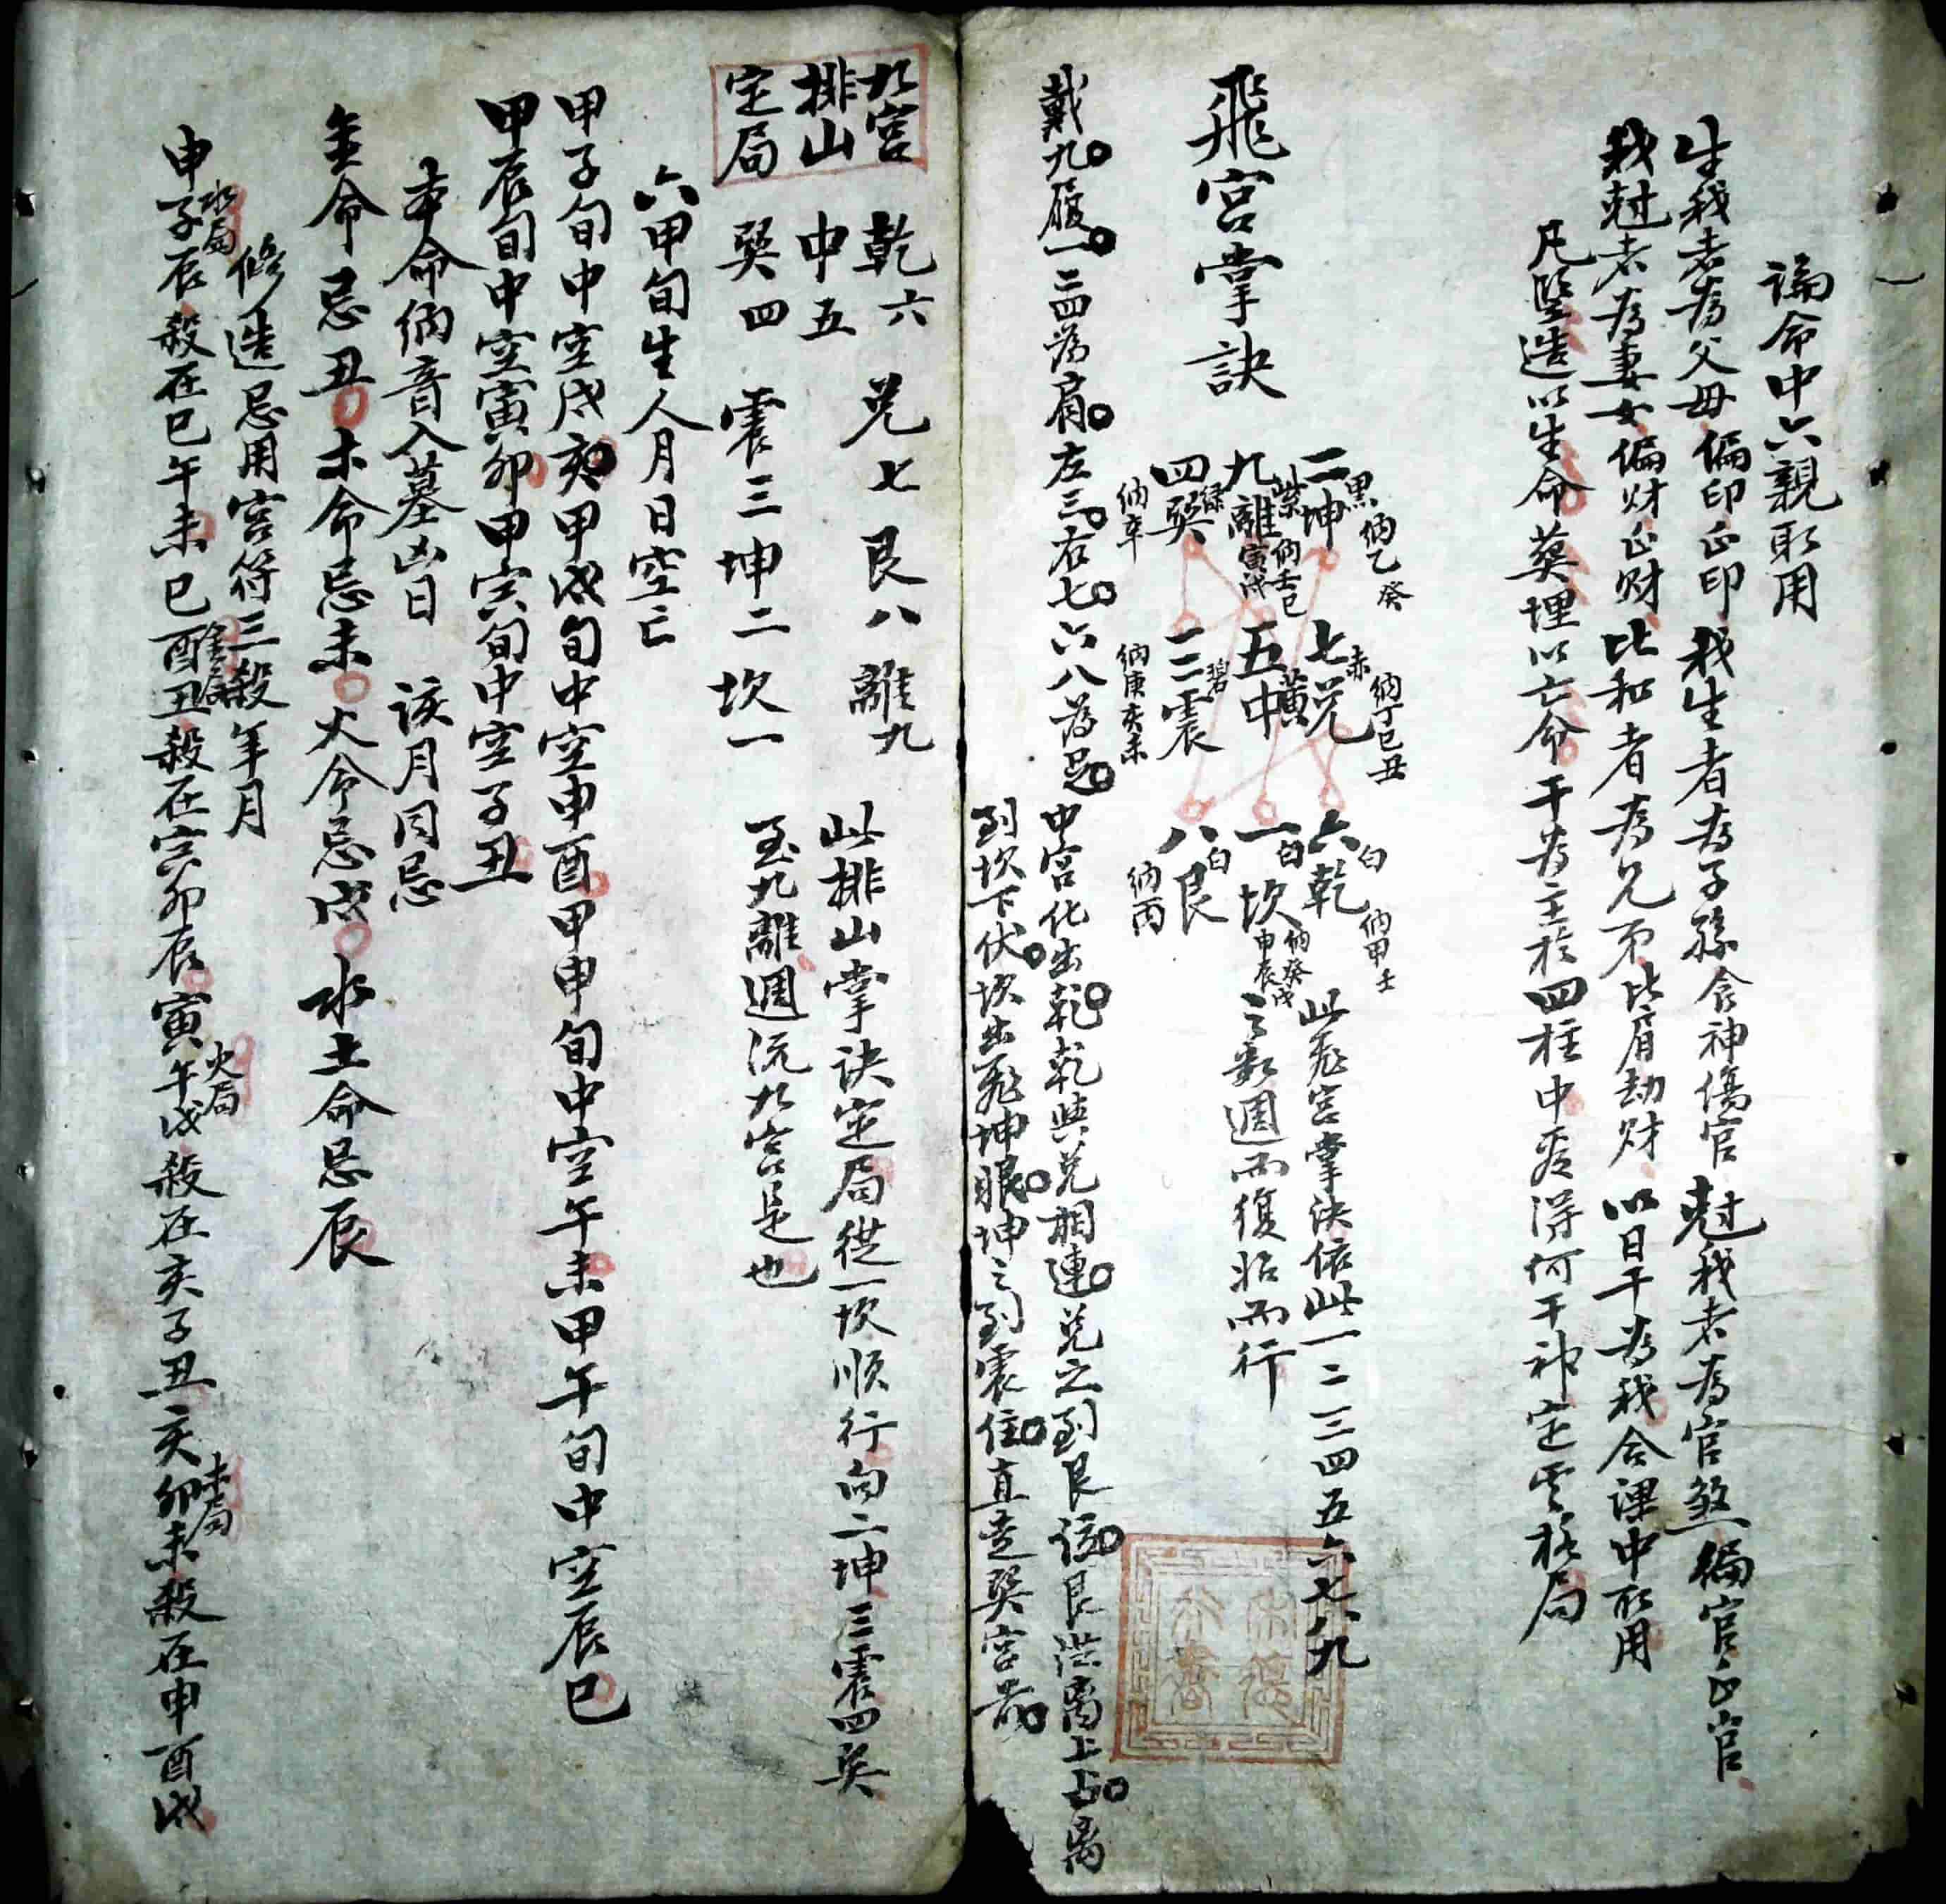 論命中六親取用
生我者為父母偏印正印 我生者為子孫食神傷官 尅我者為官煞偏官正官
我尅者為妻女偏财正财 比和者為兄弟比肩劫财 以日干為我合課中取用
凡竪造以生命葬埋以亡命干為主於四柱中 得何干神定 格局
飛宮掌訣
二黑坤納乙癸
九紫離納壬己寅戌
四綠巽納辛
七赤兌納丁巳丑
五黃中
三碧震納庚亥未
六白乾納甲壬
一白坎納癸戊申辰
八白艮納丙
此飛宮掌決依此一二三四五六七八九
之數週而復始而行
戴九履一二四為肩左三右七六八為足
中宮化出乾乾與兌相連兌之到艮 艮 离上占离
到坎下伏坎出飛坤眼坤之到震住直走巽宮前
九宮
排山
定局
乾六 兌七 艮八 離九
中五
巽四 震三 坤二 坎一
此排山掌決定局從一坎順行向二坤三震四巽
至九離週流九宮是也
六甲旬生人月日空亡
甲子旬中空戌亥甲戌旬中空申酉甲申旬中空午未甲午旬中空辰巳
甲辰旬中空寅卯甲寅旬中空子丑
本命納音入墓凶日 該月同忌
金命忌丑木命忌未火命忌戌水土命忌辰
修造忌用宮符三殺年月
申子辰水局殺在巳午未巳酉丑金局殺在寅卯辰寅午戌火局殺在亥子丑亥卯未木局殺在申酉戌